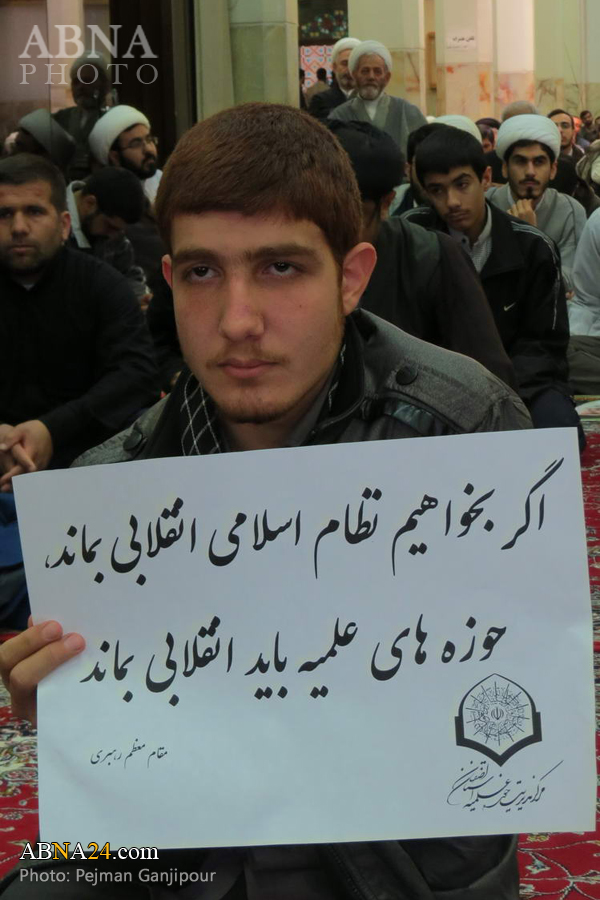 ABNA
PHOTO
اگر بخواهیم نظام اسلامی انقلابی بماند،
حوزه های علمیه باید انقلابی بماند
مقام معظم رهبری
مرکز مدیریت حوزه علمیه استان اصفهان
ABNA24.com
Photo: Pejman Ganjipour